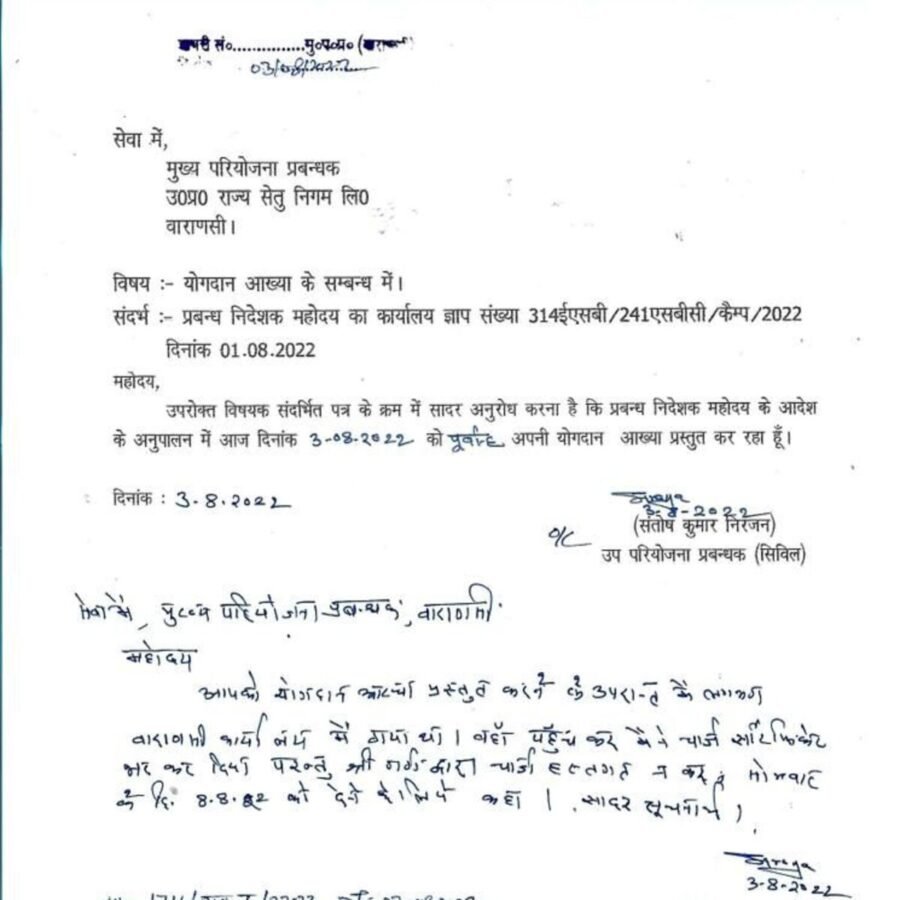 सं०...............मु०प०प्र० (वाराणसी)
03/08/2022
सेवा में,
मुख्य परियोजना प्रबन्धक
उ0प्र0 राज्य सेतु निगम लि0
वाराणसी।
विषय :- योगदान आख्या के सम्बन्ध में।
संदर्भ :- प्रबन्ध निदेशक महोदय का कार्यालय ज्ञाप संख्या 314ईएसबी/241एसबीसी/कैम्प/2022
दिनांक 01.08.2022
महोदय,
उपरोक्त विषयक संदर्भित पत्र के क्रम में सादर अनुरोध करना है कि प्रबन्ध निदेशक महोदय के आदेश
के अनुपालन में आज दिनांक 3-08-2022 को पूर्वान्ह अपनी योगदान आख्या प्रस्तुत कर रहा हूँ।
दिनांक : 3.8.2022
3-8-2022
(संतोष कुमार निरंजन)
O/C
उप परियोजना प्रबन्धक (सिविल)
सेवा में, मुख्य परियोजना प्रबन्धक, वाराणसी
महोदय
आपको योगदान आख्या प्रस्तुत करने के उपरान्त मैं लगभग
वाराणसी कार्यालय में गया था। वहाँ पहुँच कर मैंने चार्ज सर्टिफिकेट
भर कर दिया परन्तु श्री द्वारा चार्ज हस्तगत न कर सोमवार
के दि. 8.8.22 को देने के लिये कहा। सादर सूचनार्थ।
3-8-2022